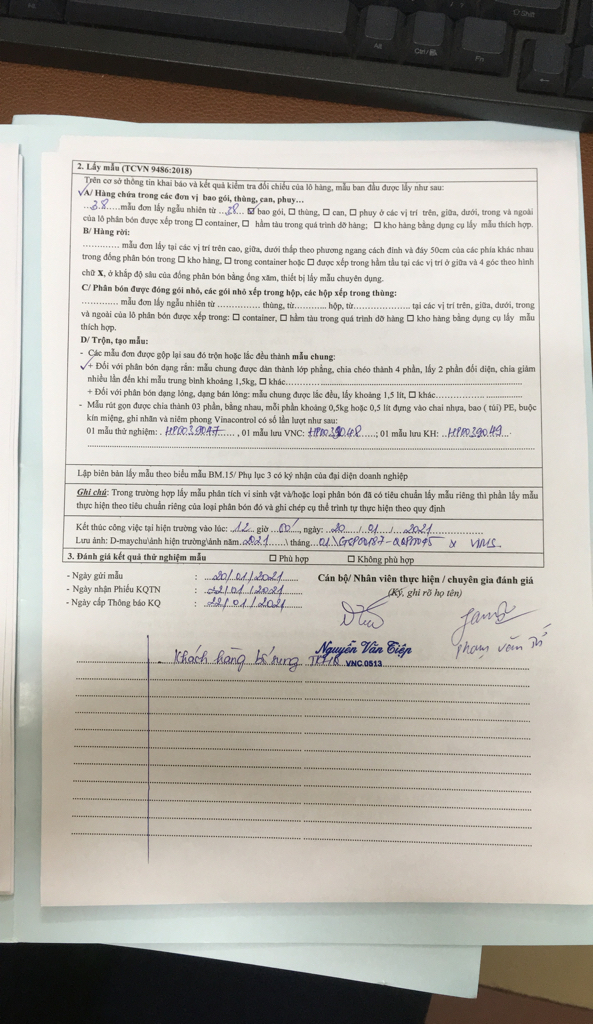 2. Lấy mẫu (TCVN 9486:2018)
Trên cơ sở thông tin khai báo và kết quả kiểm tra đối chiếu của lô hàng, mẫu ban đầu được lấy như sau:
A/ Hàng chứa trong các đơn vị bao gói, thùng, can, phuy...
...38.....mẫu đơn lấy ngẫu nhiên từ ...38... ☑ bao gói, ☐ thùng, ☐ can, ☐ phuy ở các vị trí trên, giữa, dưới, trong và ngoài
của lô phân bón được xếp trong ☐ container, ☐ hầm tàu trong quá trình dỡ hàng; ☐ kho hàng bằng dụng cụ lấy mẫu thích hợp.
B/ Hàng rời:
............. mẫu đơn lấy tại các vị trí trên cao, giữa, dưới thăp theo phương ngang cách đỉnh và đáy 50cm của các phía khác nhau
trong đống phân bón trong ☐ kho hàng, ☐ trong container hoặc ☐ được xếp trong hầm tàu tại các vị trí ở giữa và 4 góc theo hình
chữ X, ở khắp độ sâu của đống phân bón bằng ống xăm, thiết bị lấy mẫu chuyên dụng.
C/ Phân bón được đóng gói nhỏ, các gói nhỏ xếp trong hộp, các hộp xếp trong thùng:
............. mẫu đơn lấy ngẫu nhiên từ ............. thùng, từ.......... hộp, từ.................. tại các vị trí trên, giữa, dưới, trong
và ngoài của lô phân bón được xếp trong: ☐ container, ☐ hầm tàu trong quá trình dỡ hàng ☐ kho hàng bằng dụng cụ lấy mẫu
thích hợp.
D/ Trộn, tạo mẫu:
- Các mẫu đơn được gộp lại sau đó trộn hoặc lắc đều thành mẫu chung:
+ Đối với phân bón dạng rắn: mẫu chung được dàn thành lớp phẳng, chia chéo thành 4 phần, lấy 2 phần đối diện, chia giảm
nhiều lần đến khi mẫu trung bình khoảng 1,5kg, ☐ khác..................
+ Đối với phân bón dạng lỏng, dạng bán lỏng: mẫu chung được lắc đều, lấy khoảng 1,5 lít, ☐ khác..................
- Mẫu rút gọn được chia thành 03 phần, bằng nhau, mỗi phần khoảng 0,5kg hoặc 0,5 lít đựng vào chai nhựa, bao ( túi) PE, buộc
kín miệng, ghi nhãn và niêm phong Vinacontrol có số lần lượt như sau:
01 mẫu thử nghiệm: . HP0039047 ..., 01 mẫu lưu VNC: HP0039048 ....; 01 mẫu lưu KH: ..HP0039049..
Lập biên bản lấy mẫu theo biểu mẫu BM.15/ Phụ lục 3 có ký nhận của đại diện doanh nghiệp
Ghi chú: Trong trường hợp lấy mẫu phân tích vi sinh vật và/hoặc loại phân bón đã có tiêu chuẩn lấy mẫu riêng thì phần lấy mẫu
thực hiện theo tiêu chuẩn riêng của loại phân bón đó và ghi chép cụ thể trình tự thực hiện theo quy định
Kết thúc công việc tại hiện trường vào lúc: ..12.. giờ ..00'., ngày: ..20.../..01.../...2021..............
Lưu ảnh: D-maychu\ảnh hiện trường\ảnh năm..2021....\ tháng...01\
3. Đánh giá kết quả thử nghiệm mẫu ☐ Phù hợp ☐ Không phù hợp
- Ngày gửi mẫu : ...20/01/2021.....
- Ngày nhận Phiếu KQTN : ...22/01/2021.....
- Ngày cấp Thông báo KQ : ...22/01/2021.....
Cán bộ/ Nhân viên thực hiện / chuyên gia đánh giá
(Ký, ghi rõ họ tên)
Nguyễn Văn Tiệp
VNC.0513
Phạm Văn
Khách hàng bổ sung